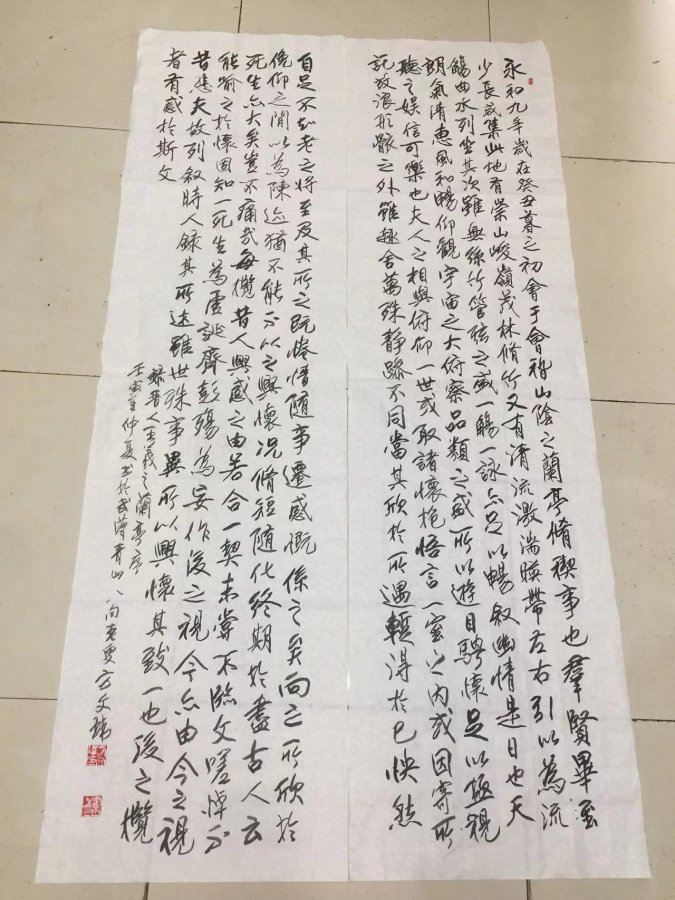 永和九年歲在癸丑暮之初會于會稽山陰之蘭亭脩禊事也群賢畢至
少長咸集此地有崇山峻嶺茂林脩竹又有清流激湍暎帶左右引以為流
觴曲水列坐其次雖無絲竹管弦之盛一觴一詠亦足以暢敘幽情是日也天
朗氣清惠風和暢仰觀宇宙之大俯察品類之盛所以遊目騁懷足以極視
聽之娛信可樂也夫人之相與俯仰一世或取諸懷抱悟言一室之內或因寄所
託放浪形骸之外雖趣舍萬殊靜躁不同當其欣於所遇暫得於己怏然
自足不知老之將至及其所之既惓情隨事遷感慨係之矣向之所欣於
俛仰之間以為陳迹猶不能不以之興懷況脩短隨化終期於盡古人云
死生亦大矣豈不痛哉每攬昔人興感之由若合一契未嘗不臨文嗟悼不
能喻之於懷固知一死生為虛誕齊彭殤為妄作後之視今亦由今之視
昔悲夫故列敘時人錄其所述雖世殊事異所以興懷其致一也後之攬
者有感於斯文
錄晉人王羲之蘭亭序
壬寅年仲夏書於武漢青山